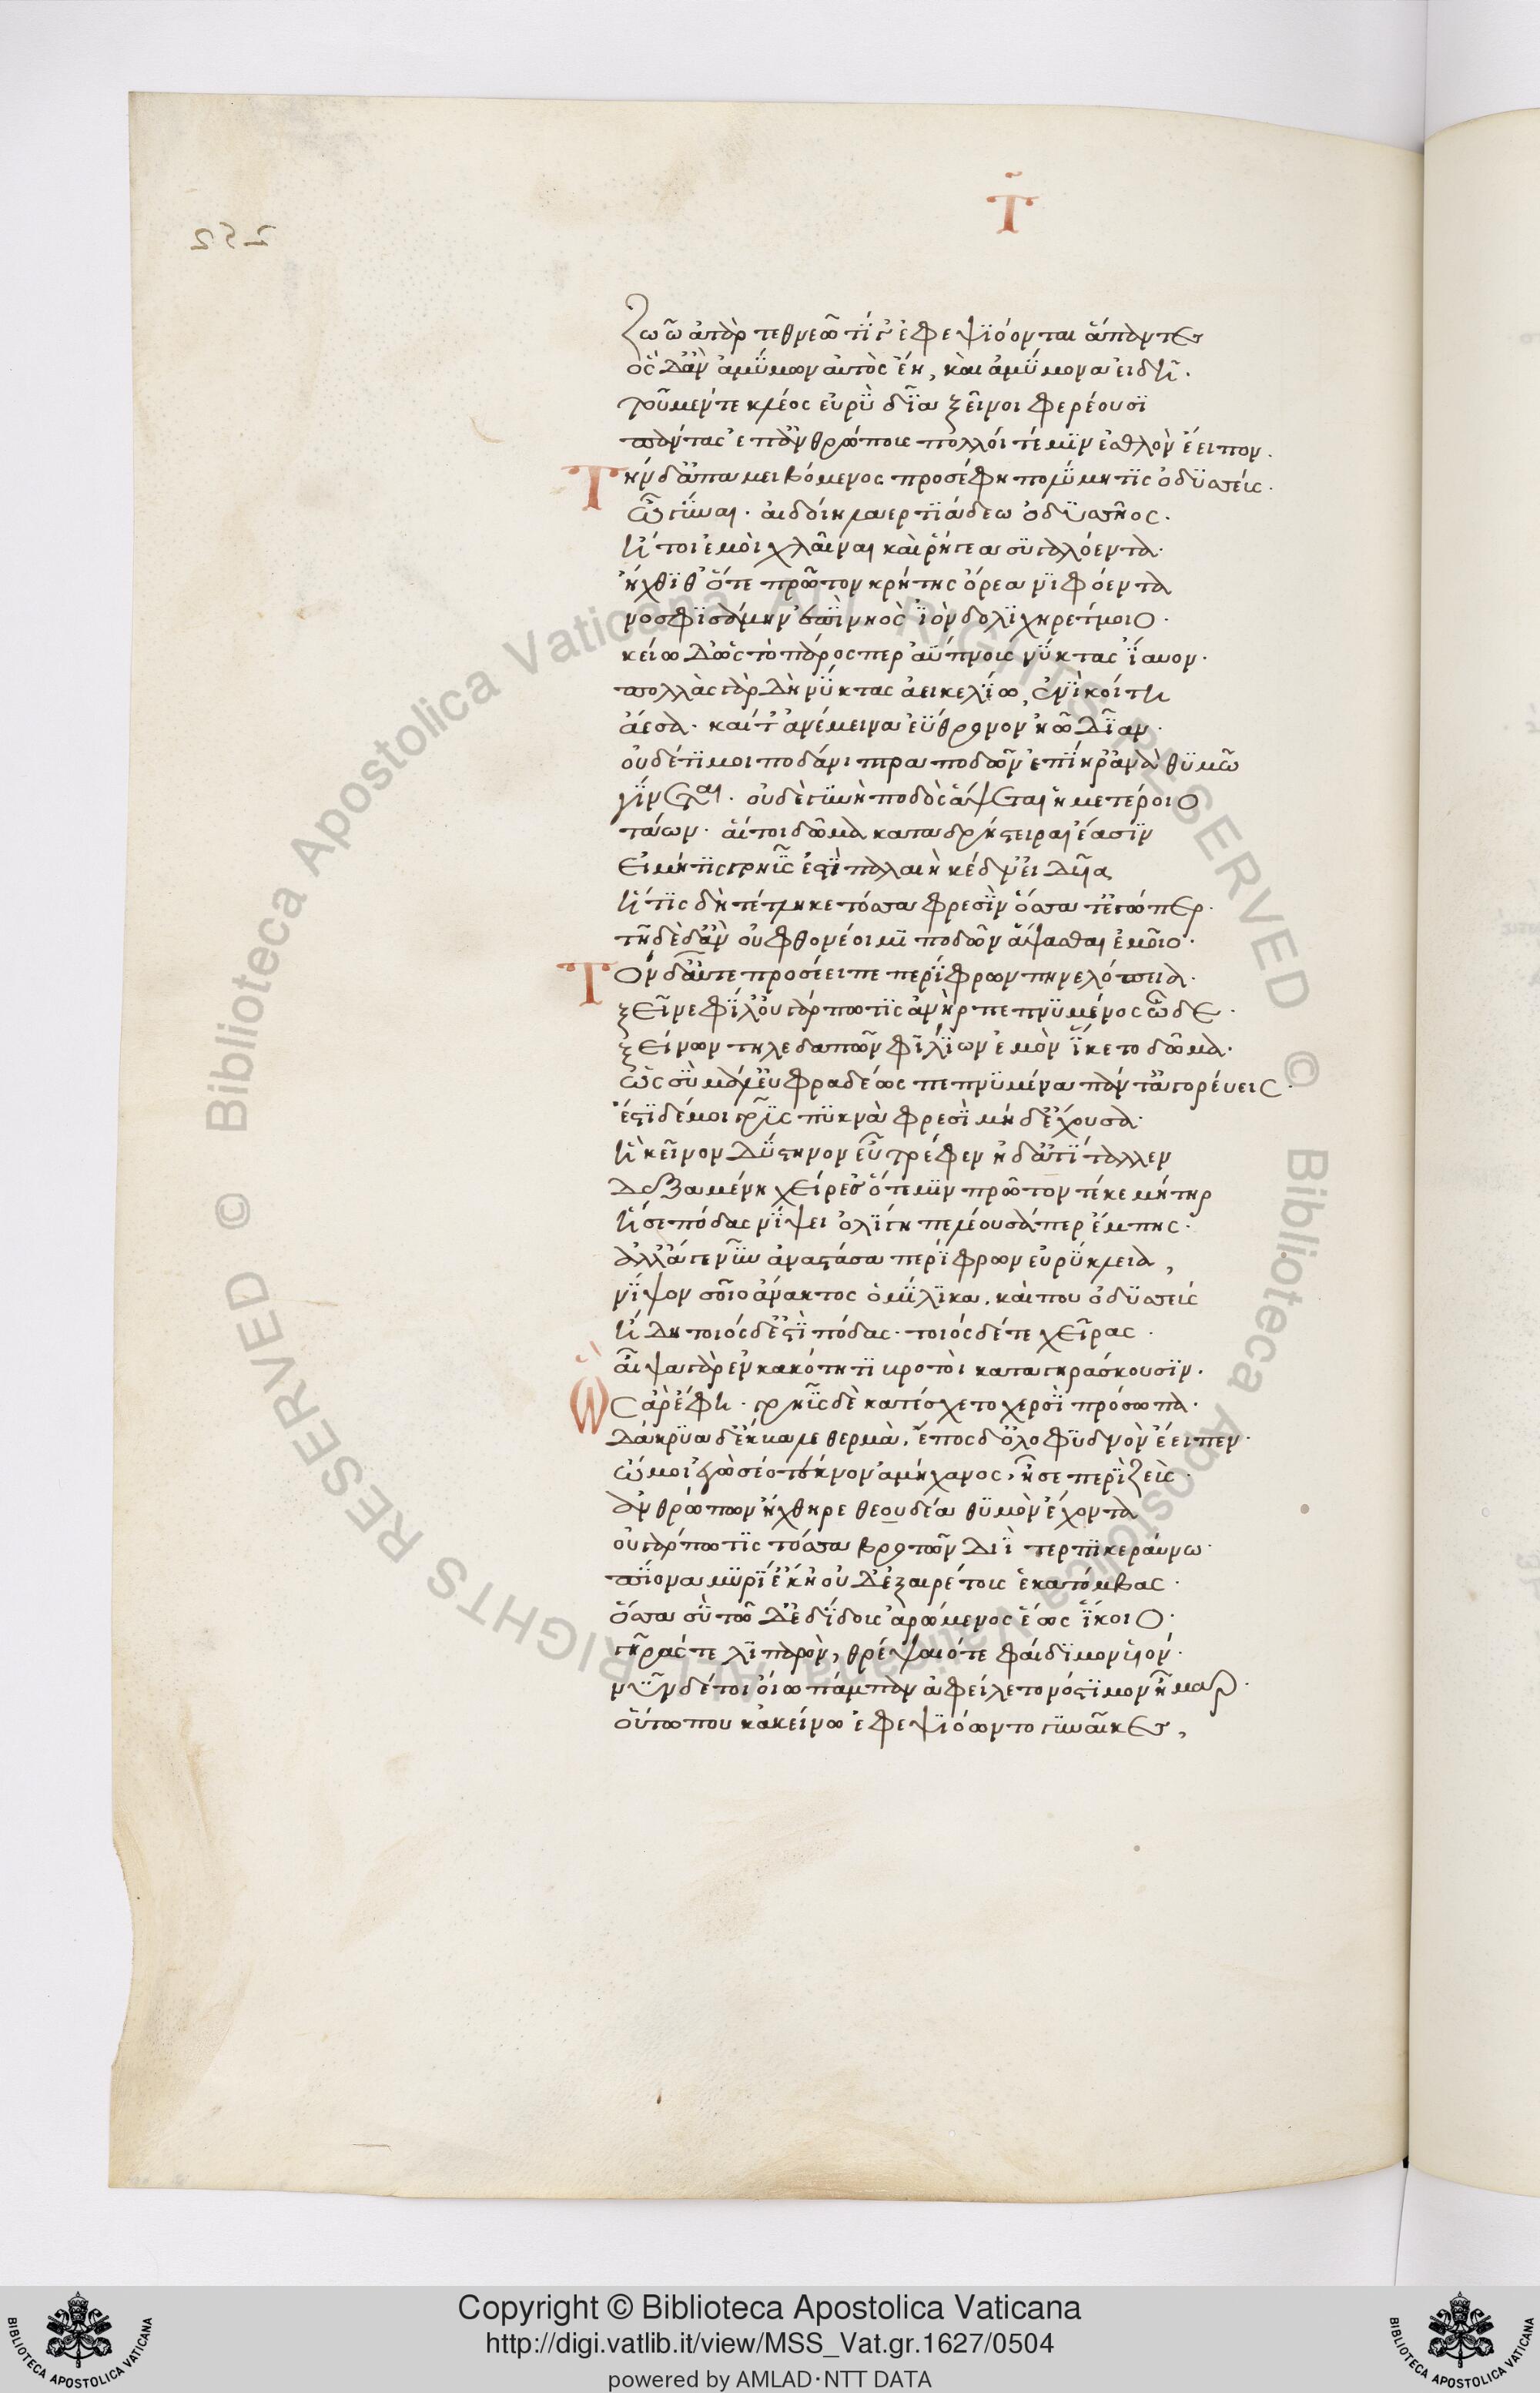 Τ
252
ζωῶ ἀτὰρ τεθνεῶτί γ' ἐφεψιόονται ἅπαντες
ὃς δ' ἂν ἀμύμων αὐτὸς ἔη, καὶ ἀμύμονα εἰδῆ.
τοῦ μέν τε κλέος εὐρὺ διὰ ξεῖνοι φερέουσι
πάντας ἐπ' ἀνθρώπους πολλοί τέ μιν ἐσθλὸν ἔειπον.
Τὴν δ' ἀπαμειβόμενος προσέφη πολύμητις ὀδυσσεύς.
ὦ γύναι. αἰδοίη λαερτιάδεω ὀδυσσῆος.
ἤτοι ἐμοὶ χλαῖναι καὶ ῥήγεα σιγαλόεντα.
ἤχθεθ' ὅτε πρῶτον κρήτης ὄρεα νιφόεντα
νοσφισάμην ἐπὶ νηὸς ἰὼν δολιχηρέτμοιο.
κείω δ' ὡς τὸ πάρος περ ἀΰπνους νύκτας ἴαυον.
πολλὰς γὰρ δὴ νύκτας ἀεικελίω ἐνὶ κοίτη
ἄεσα. καί τ' ἀνέμεινα ἐΰθρονον ἠῶ δῖαν.
οὐδέ τί μοι ποδάνιπτρα ποδῶν ἐπίηρανα θυμῶ
γίνεται. οὐδὲ γυνὴ ποδὸς ἅψεται ἡμετέροιο
τάων. αἵ τοι δῶμα κατα δρήστειραι ἔασιν
εἰ μή τις γρηῦς ἐστὶ παλαιὴ κέδν' εἰδυῖα
ἥτις δὴ τέτληκε τόσσα φρεσὶν ὅσσα τ' ἐγώ περ.
τῆ δὲ δ' ἂν οὐ φθονέοιμι ποδῶν ἅψασθαι ἐμοῖο.
Τὸν δ' αὖτε προσέειπε περίφρων πηνελόπεια.
ξεῖνε φίλ' οὐ γάρ πω τις ἀνὴρ πεπνυμένος ὧδε.
ξείνων τηλεδαπῶν φιλίων ἐμὸν ἵκετο δῶμα.
ὡς σὺ μάλ' εὐφραδέως πεπνυμένα πάντ' ἀγορεύεις.
ἔστι δέ μοι γρηῦς πυκνὰ φρεσὶ μήδε' ἔχουσα.
ἣ κεῖνον δύστηνον εὖ τρέφεν ἠδ' ἀτίταλλεν
δεξαμένη χείρεσ' ὅτε μιν πρῶτον τέκε μήτηρ
ἥ σε πόδας νίψει ὀλιγηπελέουσά περ ἔμπης.
ἀλλ' ἄγε νῦν ἀναστᾶσα περίφρων εὐρύκλεια,
νίψον σοῖο ἄνακτος ὁμήλικα. καί που ὀδυσσεύς
ἤδη τοιόσδ' ἐστὶ πόδας. τοιόσδέ τε χεῖρας.
αἶψα γὰρ ἐν κακότητι βροτοὶ καταγηράσκουσιν.
Ὣς ἄρ' ἔφη. γρηῦς δὲ κατέσχετο χερσὶ πρόσωπα.
δάκρυα δ' ἔκβαλε θερμὰ. ἔπος δ' ὀλοφυδνὸν ἔειπεν.
ὤ μοι ἐγὼ σέο τέκνον ἀμήχανος, ἦ σε περὶ ζεὺς
ἀνθρώπων ἤχθηρε θεουδέα θυμὸν ἔχοντα
οὐ γάρ πω τις τόσσα βροτῶν διὶ τερπικεραύνω.
πίονα μηρί' ἔκη' οὐδ' ἐξαιρέτους ἑκατόμβας.
ὅσσα σὺ τῶ δ' ἐδίδους ἀρώμενος ἕως ἵκοιο.
γῆράς τε λιπαρὸν, θρέψαιό τε φαίδιμον υἱόν.
νῦν δέ τοι οἴω πάμπαν ἀφείλετο νόστιμον ἦμαρ.
οὕτω που κἀκείνω ἐφεψιόωντο γυναῖκες,
Copyright © Biblioteca Apostolica Vaticana
http://digi.vatlib.it/view/MSS_Vat.gr.1627/0504
powered by AMLAD·NTT DATA
BIBLIOTECA APOSTOLICA VATICANA
BIBLIOTECA APOSTOLICA VATICANA
© Biblioteca Apostolica Vaticana ALL RIGHTS RESERVED © Biblioteca Apostolica Vaticana ALL RIGHTS RESERVED